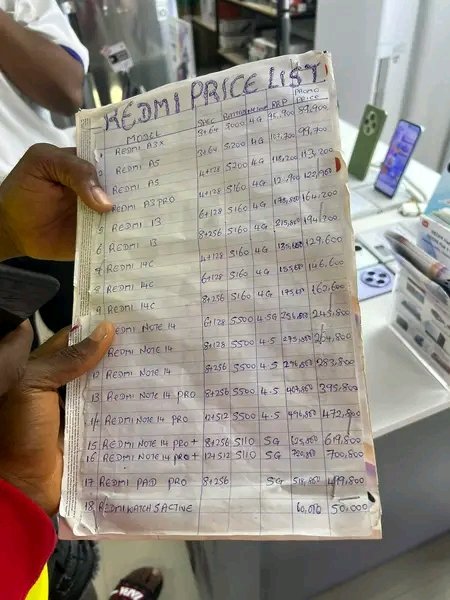 REDMI PRICE LIST
MODEL SPEC BATT 4G RRP PROMO PRICE
REDMI A3X 3+64 5000 4G 95,900 89,900
2 REDMI A5 3+64 5200 4G 99,900
REDMI A5 4+128 5200 4G 113,200
REDMI A3 PRO 4+128 5160 4G 122,900
5 REDMI 13 6+128 5160 4G 164,200
6 REDMI 13 8+256 5160 4G 215,800 194,200
7 REDMI 14C 4+128 5160 4G 135,800 129,600
8 REDMI 14C 6+128 5160 4G 155,800 146,600
9 REDMI 14C 8+256 5160 4G 175,800 162,600
REDMI NOTE 14 6+128 5500 4.5G 256,800 245,800
REDMI NOTE 14 8+128 5500 4.5 275,800 264,800
12 REDMI NOTE 14 8+256 5500 4.5 296,800 283,800
13 REDMI NOTE 14 PRO 8+256 5500 4.5 407,850 395,800
14 REDMI NOTE 14 PRO 12+512 5500 4.5 496,850 472,800
15 REDMI NOTE 14 PRO+ 8+256 5110 5G 625,800 619,800
16 REDMI NOTE 14 PRO+ 12+512 5110 5G 720,800 700,800
17 REDMI PAD PRO 8+256 5G 518,800 499,800
18 REDMI WATCH 5 ACTIVE 60,010 50,000